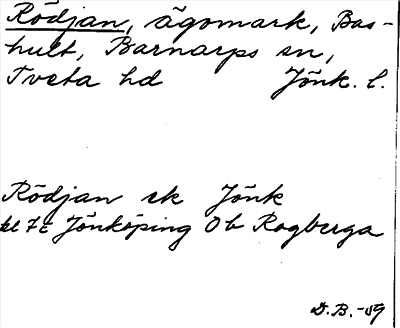 Rödjan, ägomark, Bas-
hult, Barnarps sn,
Tveta hd Jönk. l.
Rödjan ek Jönk
bl 7E Jönköping Ob Rogberga
D.B.-59